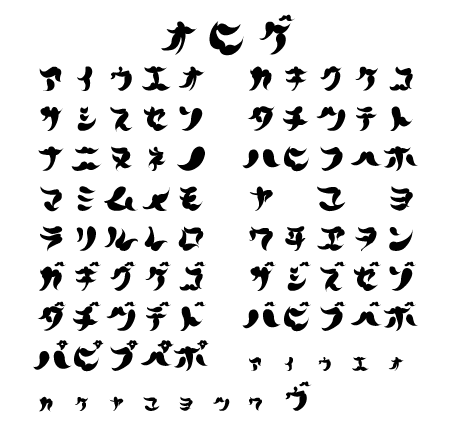 オヒゲ
アイウエオ カキクケコ
サシスセソ タチツテト
ナニヌネノ ハヒフヘホ
マミムメモ ヤ ユ ヨ
ラリルレロ ワヰヱヲン
ガギグゲゴ ザジズゼゾ
ダヂヅデド バビブベボ
パピプペポ ァィゥェォ
ヵヶャュョッヮヴ